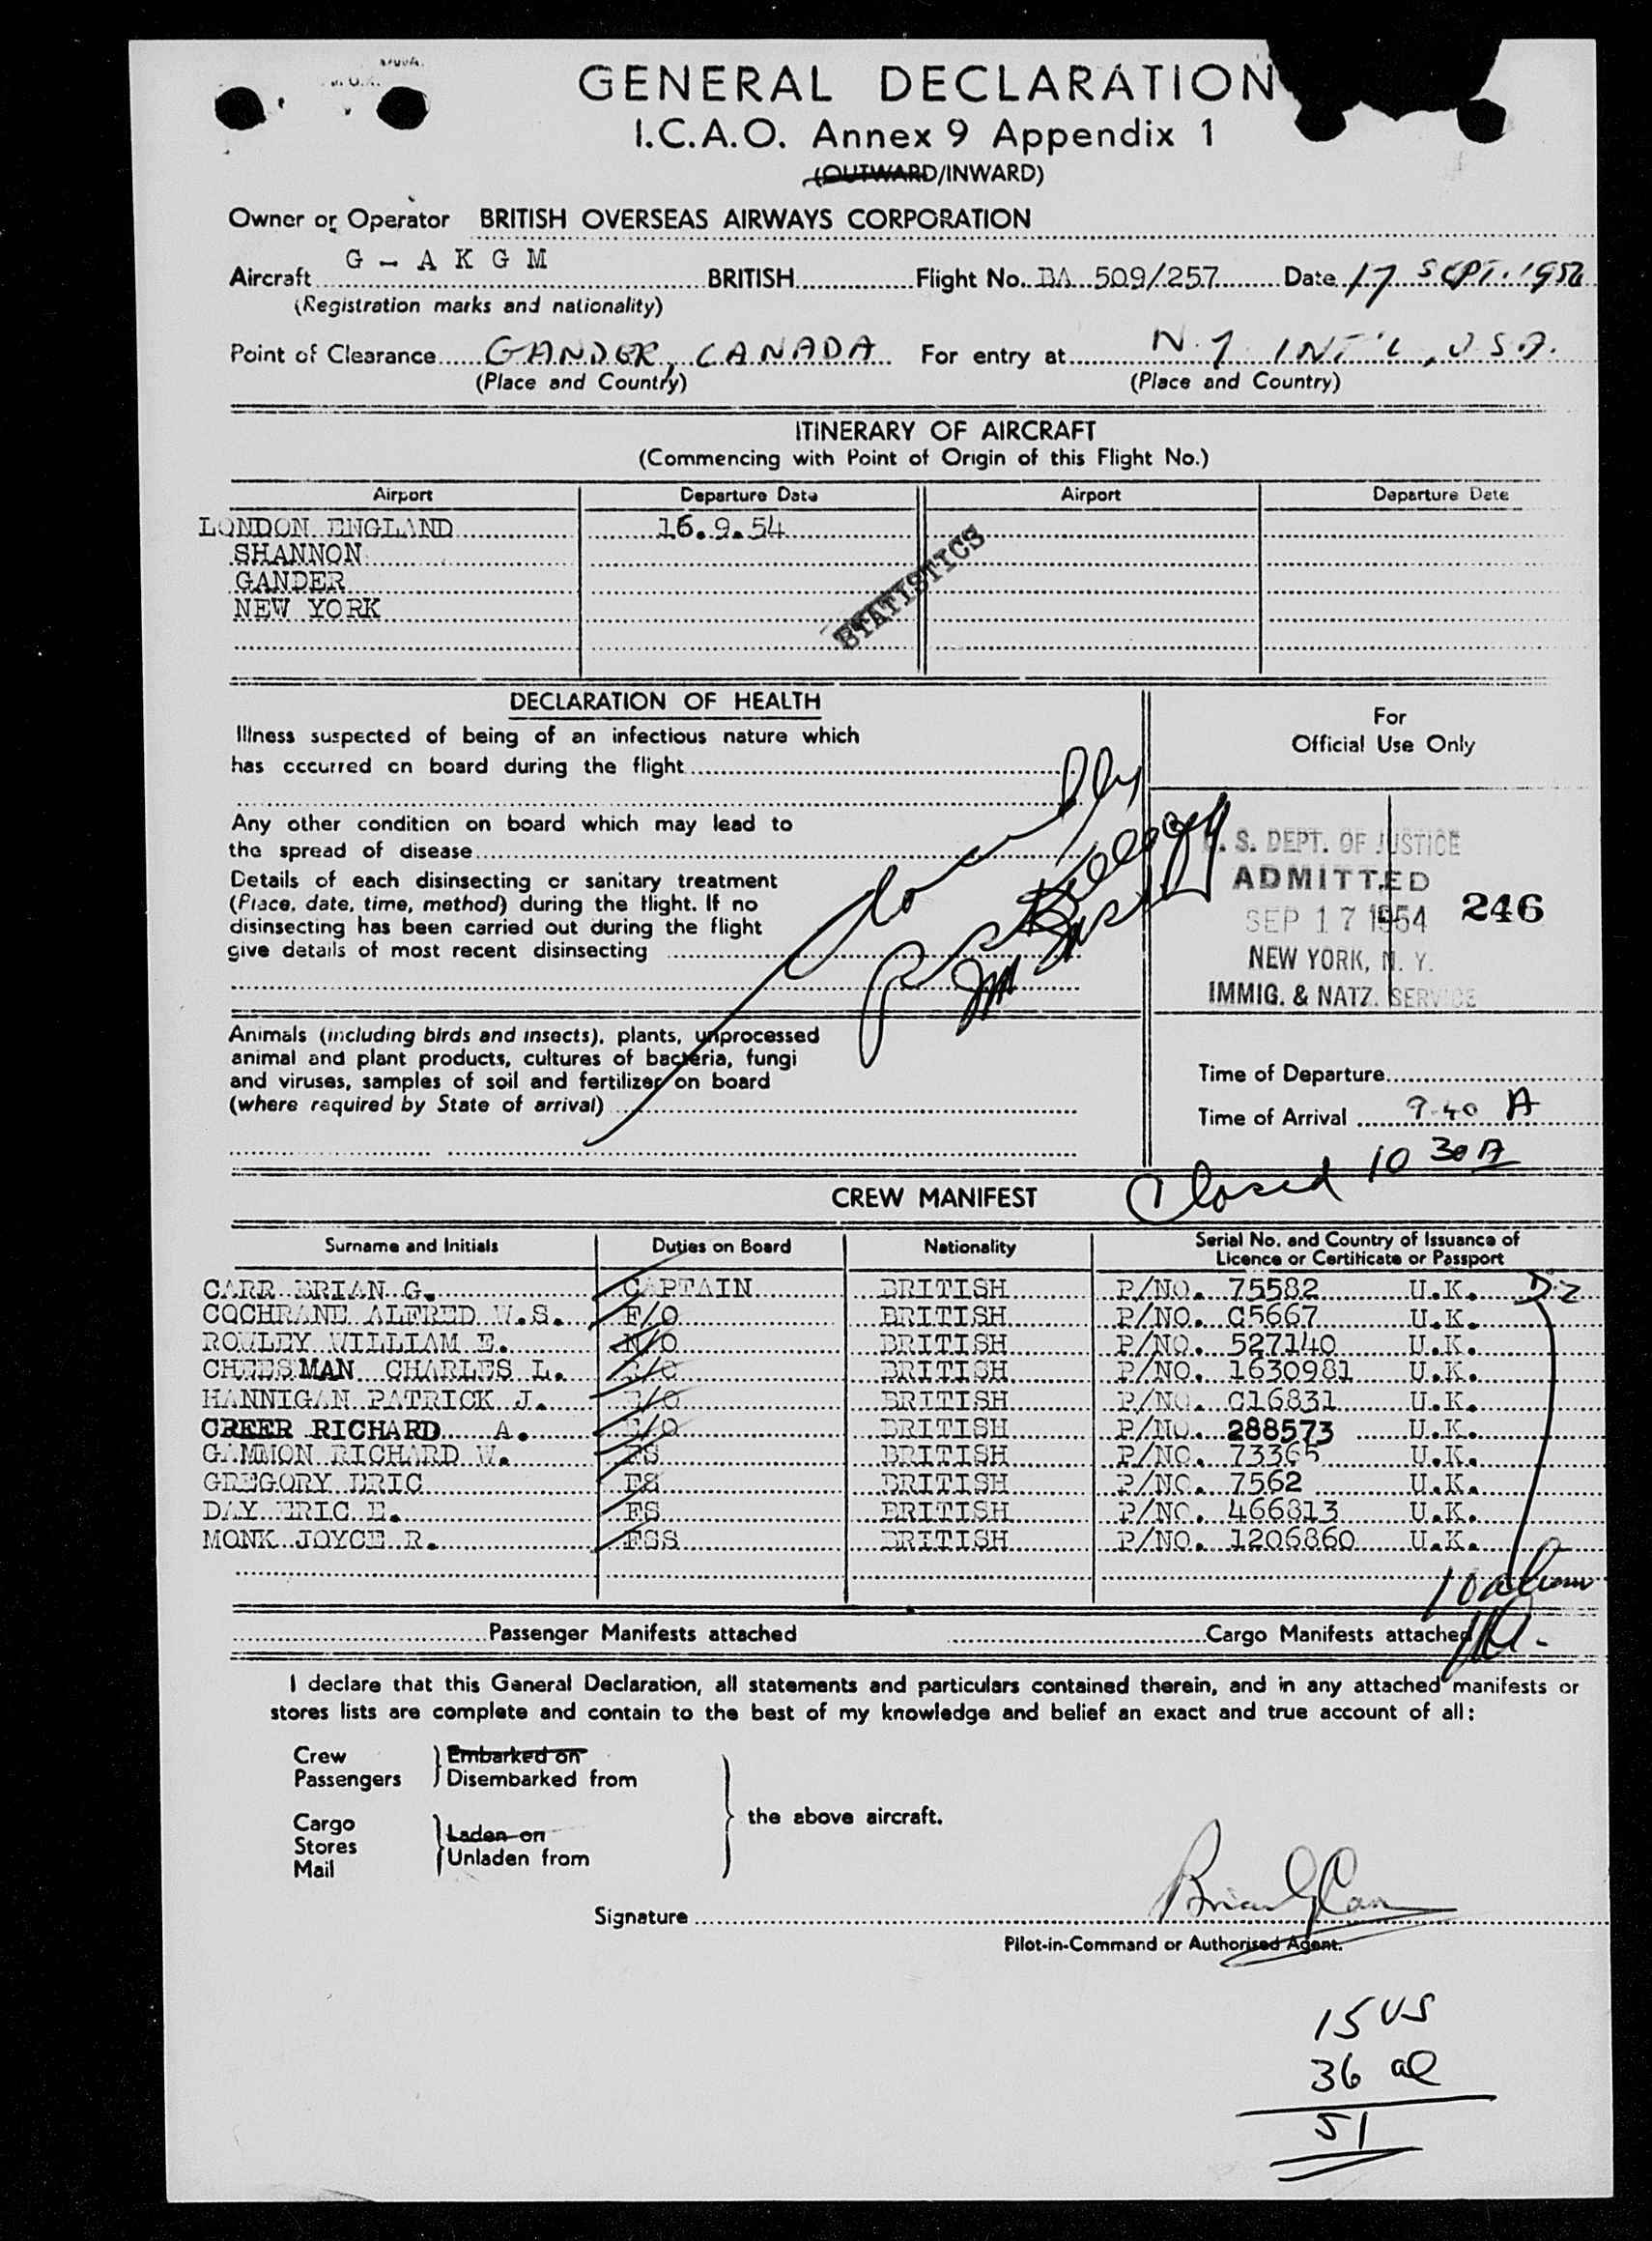 GENERAL DECLARATION
I.C.A.O. Annex 9 Appendix 1
(OUTWARD/INWARD)
Owner or Operator BRITISH OVERSEAS AIRWAYS CORPORATION
Aircraft G - A K G M BRITISH Flight No. BA 509/257 Date 17 SEPT. 1954
(Registration marks and nationality)
Point of Clearance GANDER, CANADA For entry at N.Y. INT'L, USA.
(Place and Country) (Place and Country)
ITINERARY OF AIRCRAFT
(Commencing with Point of Origin of this Flight No.)
Airport Departure Date Airport Departure Date
LONDON ENGLAND 16.9.54
SHANNON
GANDER
NEW YORK
STATISTICS
DECLARATION OF HEALTH
Illness suspected of being of an infectious nature which
has occurred on board during the flight
Any other condition on board which may lead to
the spread of disease
Details of each disinsecting or sanitary treatment
(Place, date, time, method) during the flight. If no
disinsecting has been carried out during the flight
give details of most recent disinsecting
Animals (including birds and insects), plants, unprocessed
animal and plant products, cultures of bacteria, fungi
and viruses, samples of soil and fertilizer on board
(where required by State of arrival)
For
Official Use Only
. S. DEPT. OF JUSTICE
ADMITTED
SEP 17 1954 246
NEW YORK, N. Y.
IMMIG. & NATZ. SERVICE
Time of Departure
Time of Arrival 9.40 A
Closed 10 30 A
CREW MANIFEST
Surname and Initials Duties on Board Nationality Serial No. and Country of Issuance of
Licence or Certificate or Passport
CARR BRIAN G. CAPTAIN BRITISH P/NO. 75582 U.K.
COCHRANE ALFRED W.S. F/O BRITISH P/NO. C5667 U.K.
ROWLEY WILLIAM E. N/O BRITISH P/NO. 527140 U.K.
CHEESMAN CHARLES L. BRITISH P/NO. 1630981 U.K.
HANNIGAN PATRICK J. BRITISH P/NO. C16831 U.K.
GREER RICHARD A. BRITISH P/NO. 288573 U.K.
GAMMON RICHARD W. FS BRITISH P/NO. 73365 U.K.
GREGORY ERIC FS BRITISH P/NO. 7562 U.K.
DAY ERIC E. FS BRITISH P/NO. 466813 U.K.
MONK JOYCE R. FSS BRITISH P/NO. 1206860 U.K.
Passenger Manifests attached Cargo Manifests attached
I declare that this General Declaration, all statements and particulars contained therein, and in any attached manifests or
stores lists are complete and contain to the best of my knowledge and belief an exact and true account of all:
Crew
Passengers
Embarked on
Disembarked from
Cargo
Stores
Mail
Laden on
Unladen from
the above aircraft.
Signature Brian G Carr
Pilot-in-Command or Authorised Agent.
15 US
36 al
51